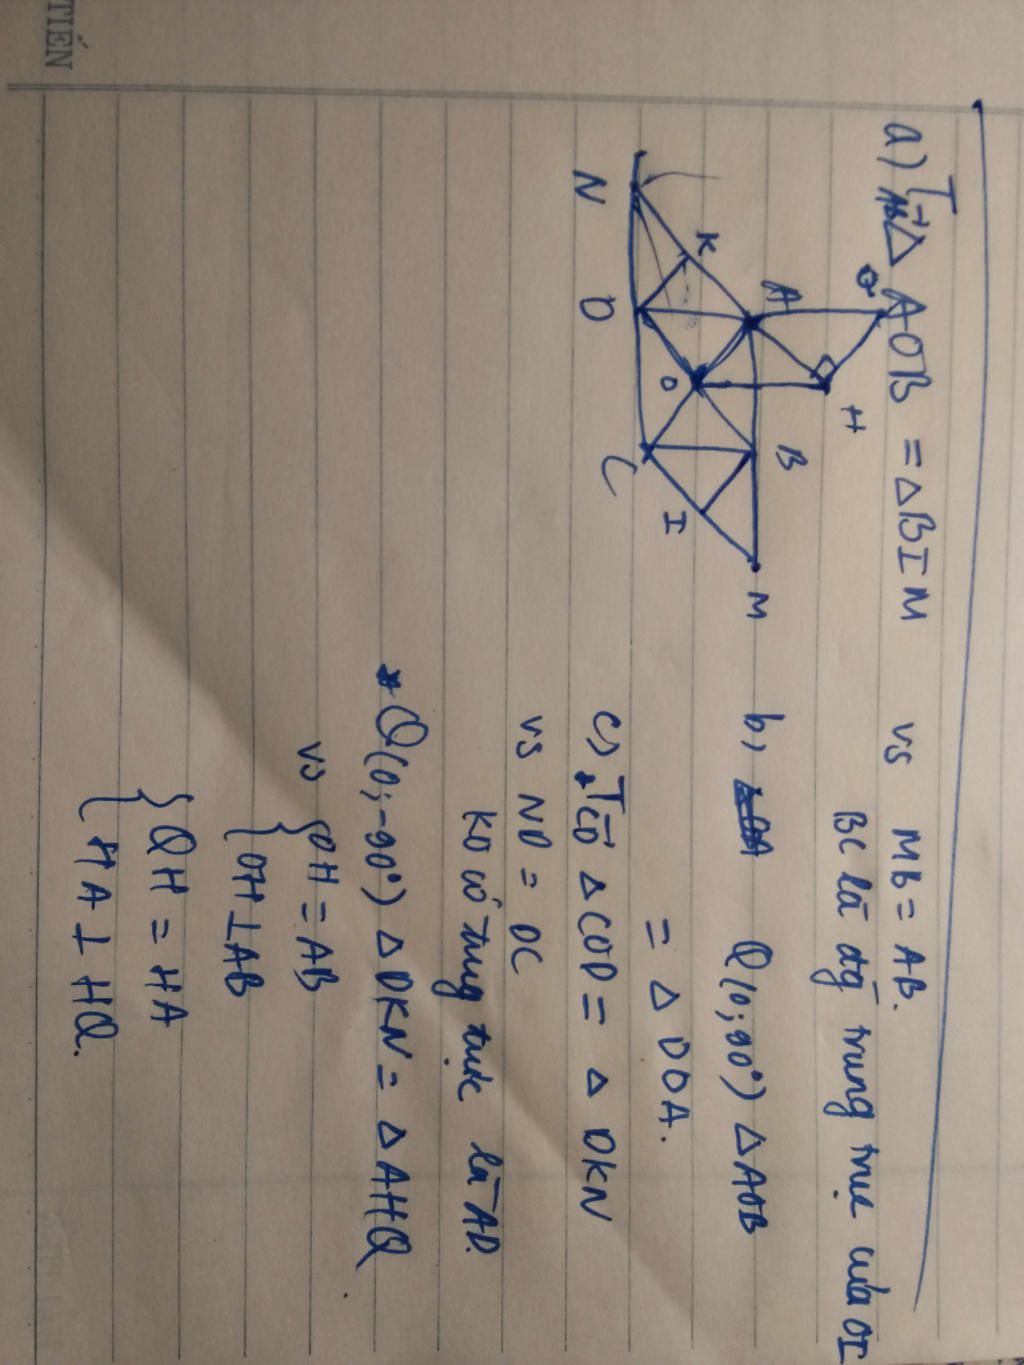 TIẾN
a) T→AB △ AOB = △BIM vs MB = AB.
BC là đg trung trực của OI
Q
H
A
B
M
K
O
I
N
D
C
b) Q(O;90°) △AOB
= △ DOA.
c) T→CD △COD = △ DKN
vs ND = DC
KO có trung trực là AD.
* Q(O;-90°) △DKN = △AHQ
vs { OH = AB
{ OH ⊥ AB
{ QH = HA
{ HA ⊥ HQ.